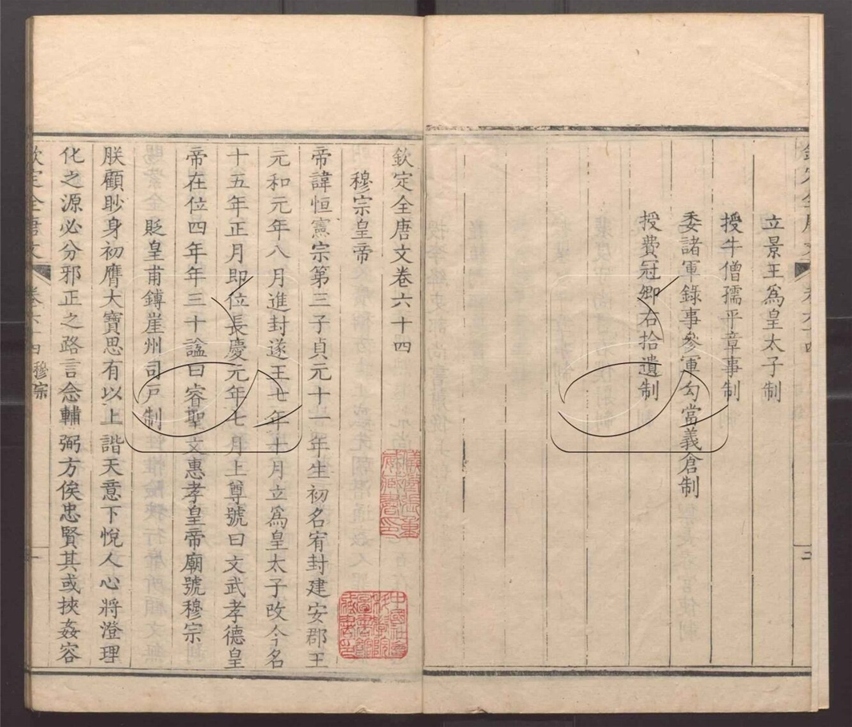 立景王爲皇太子制
授牛僧孺平章事制
委諸軍錄事參軍勾當義倉制
授費冠卿右拾遺制
欽定全唐文卷六十四
穆宗皇帝
帝諱恒憲宗第三子貞元十一年生初名宥封建安郡王
元和元年八月進封遂王七年十月立爲皇太子改今名
十五年正月卽位長慶元年七月上尊號曰文武孝德皇
帝在位四年年三十諡曰睿聖文惠孝皇帝廟號穆宗
貶皇甫鏄崖州司戸制
朕顧眇身初膺大寶思有以上諧天意下悅人心將澄理
化之源必分邪正之路言念輔弼方俟忠賢其或挾姦容
欽定全唐文 卷六十四 穆宗 一